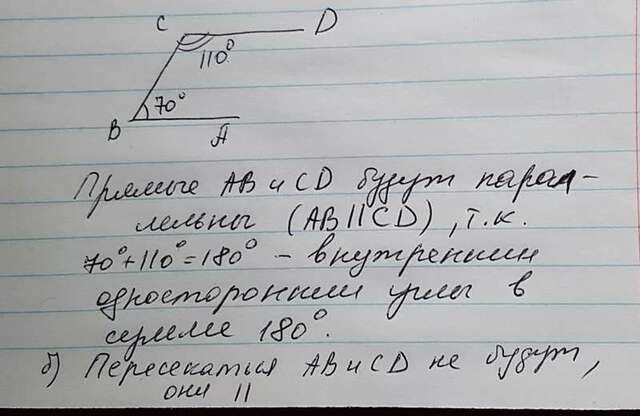 C D
110°
70°
B A
Прямые AB и CD будут парал-
лельны (AB || CD), т.к.
70°+110°=180° - внутренним
односторонним углы в
сумме 180°.
б) Пересекаться AB и CD не будут,
они ||